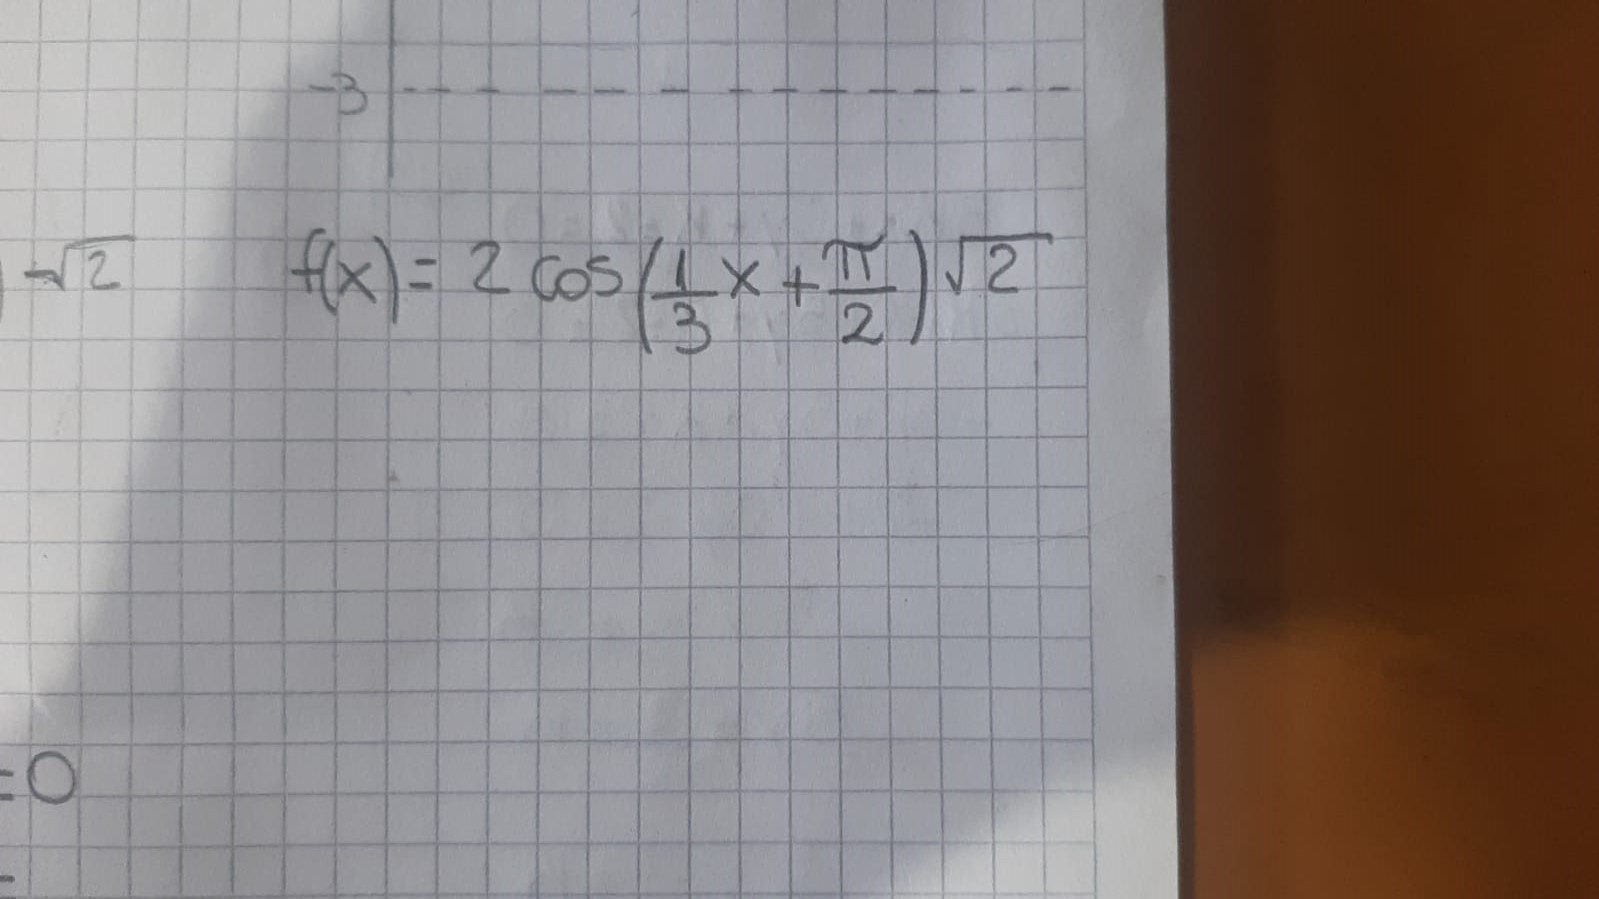 -3
) -√2 f(x) = 2 cos(1/3 x + π/2) √2
=0